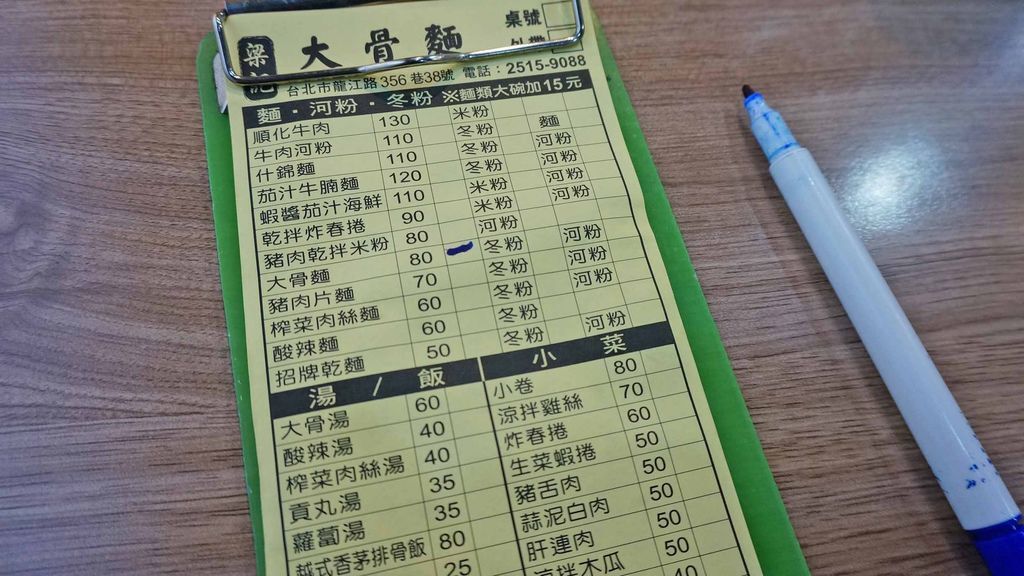 梁記 大骨麵 桌號
外帶
台北市龍江路356巷38號 電話：2515-9088
麵・河粉・冬粉 ※麵類大碗加15元
順化牛肉 130 米粉
牛肉河粉 110 冬粉 麵
什錦麵 110 冬粉 河粉
茄汁牛腩麵 120 冬粉 河粉
蝦醬茄汁海鮮 110 米粉 河粉
乾拌炸春捲 90 米粉 河粉
豬肉乾拌米粉 80 河粉
大骨麵 80 冬粉 河粉
豬肉片麵 70 冬粉 河粉
榨菜肉絲麵 60 冬粉 河粉
酸辣麵 60 冬粉
招牌乾麵 50 冬粉 河粉
湯 / 飯
大骨湯 60
酸辣湯 40
榨菜肉絲湯 40
貢丸湯 35
蘿蔔湯 35
越式香茅排骨飯 80
25
小菜
小卷 80
涼拌雞絲 70
炸春捲 60
生菜蝦捲 50
豬舌肉 50
蒜泥白肉 50
肝連肉 50
涼拌木瓜 50
40